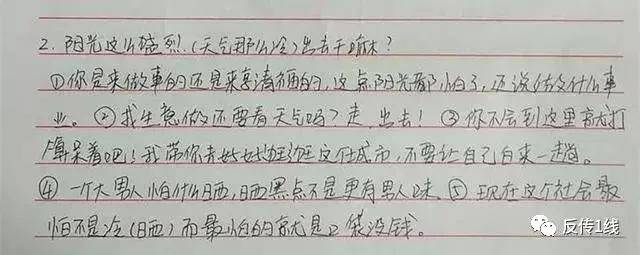 2. 阳光这么强烈.(天气那么冷)出去干嘛?
①你是来做事的还是来享清福的,这点阳光都怕了,还说做什么事
业。②找生意做还要看天气吗?走,出去!③你不会到这里就打
算呆着吧!我带你去好好逛逛这个城市,不要让自己白来一趟。
④一个大男人怕什么晒,晒黑点不是更有男人味。⑤现在这个社会最
怕不是冷(晒)而最怕的就是口袋没钱。
反传1线